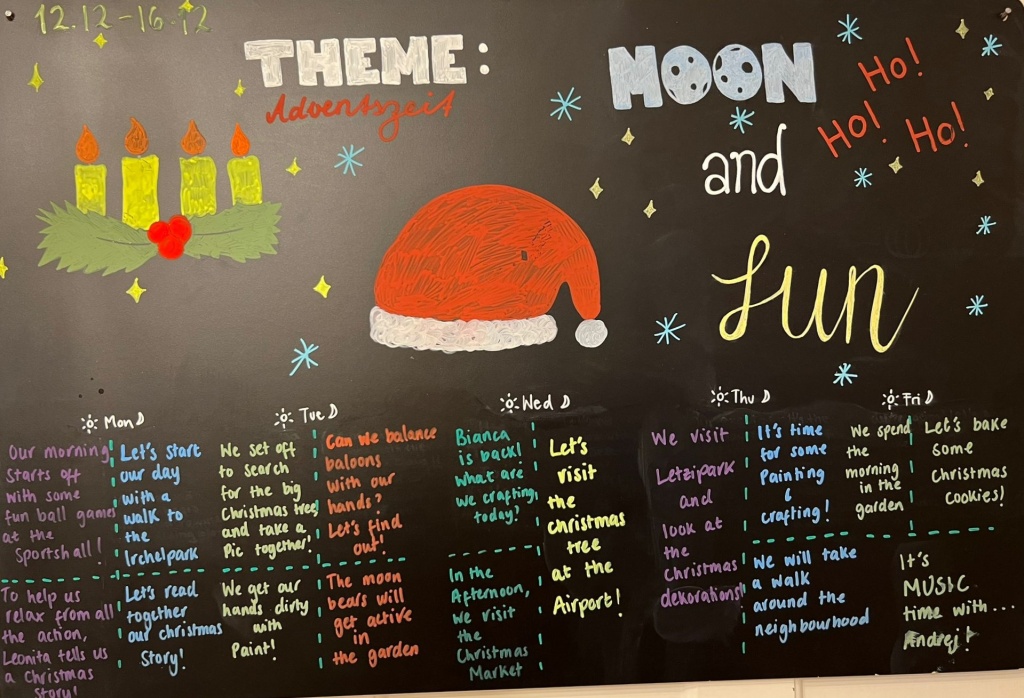 12.12-16.12
THEME:
Adventszeit
MOON
and
fun
Ho!
Ho! Ho!
Mon
Our morning
starts off
with some
fun ball games
at the
Sportshall!
To help us
relax from all
the action,
Leonita tells us
a Christmas
Story!
Let's start
our day
with a
walk to
the
Irchelpark
Let's read
together
our christmas
Story!
Tue
We set off
to search
for the big
Christmas tree
and take a
Pic together!
We get our
hands dirty
with
Paint!
Can we balance
baloons
with our
hands?
Let's find
out!
The moon
bears will
get active
in
the garden
Wed
Bianca
is back!
what are
we crafting
today?
In the
Afternoon,
we visit
the
Christmas
Market
Let's
visit
the
christmas
tree
at the
Airport!
Thu
We visit
Letzipark
and
look at
the
christmas
dekorations!
It's time
for some
Painting
&
crafting!
We will take
a walk
around the
neighbourhood
Fri
We spend
the
morning
in the
garden
Let's bake
some
Christmas
cookies!
It's
MUSIC
time with...
Andrej!